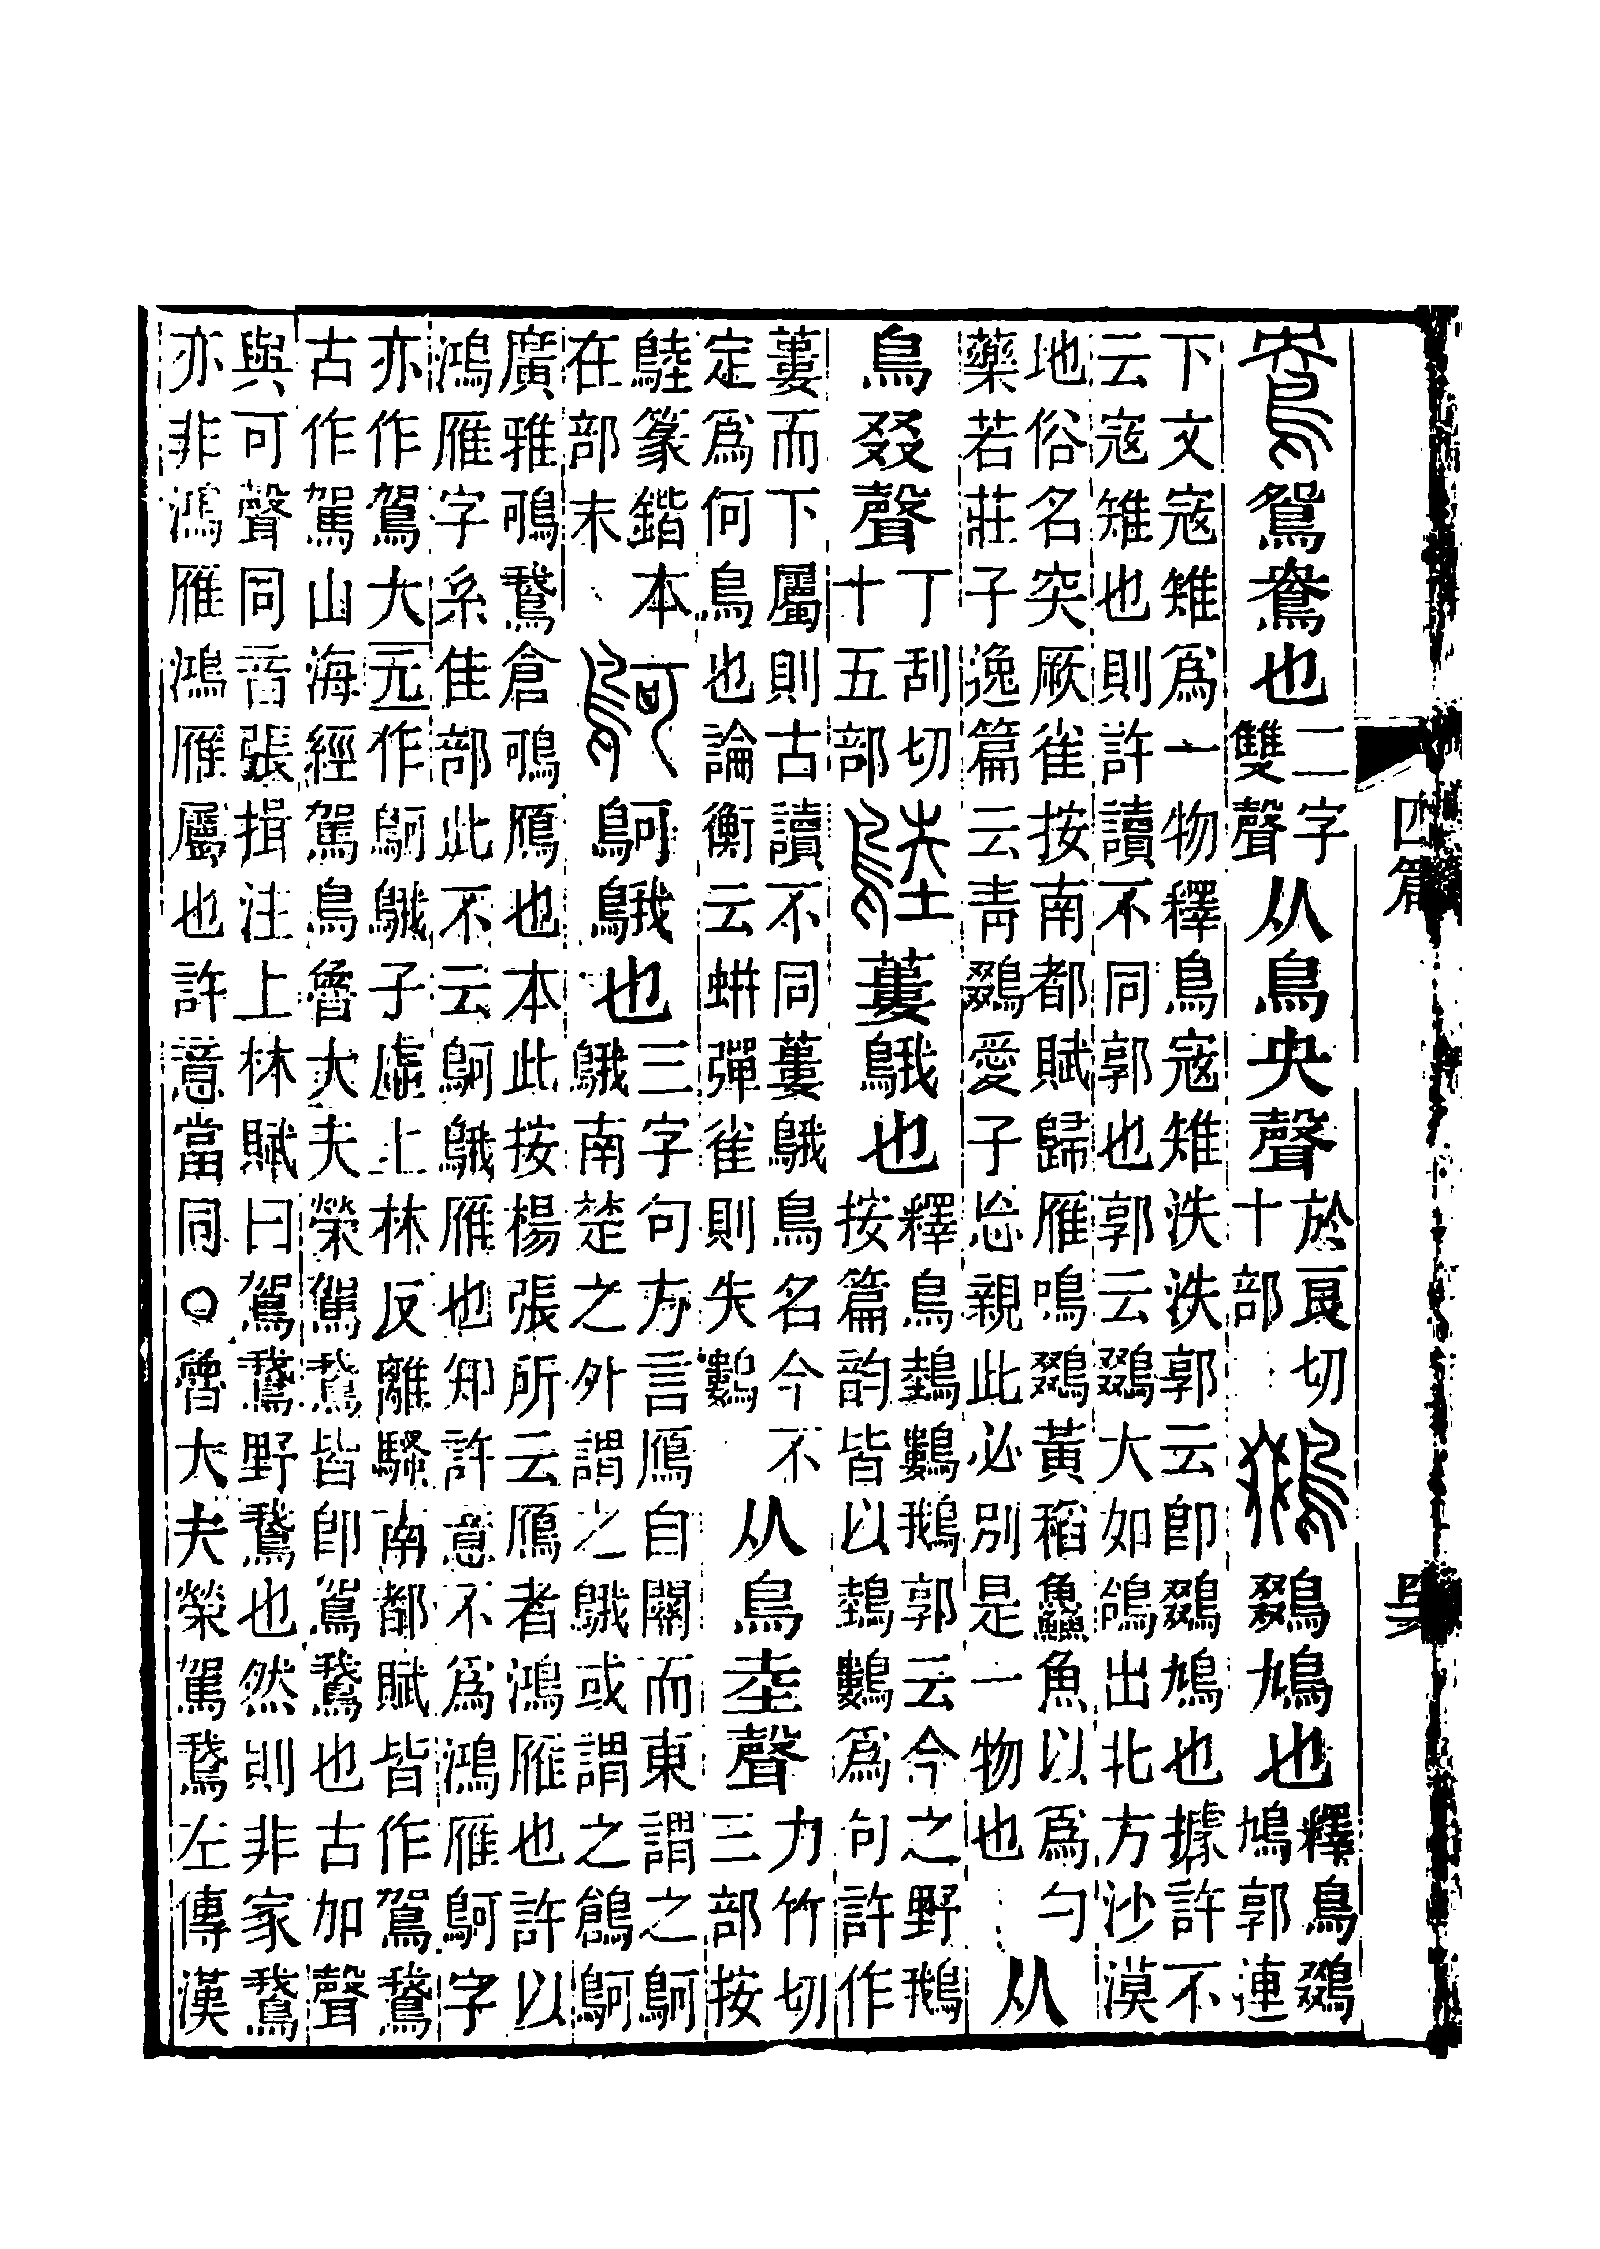 鴦鴛鴦也二字雙聲从鳥央聲於良切十部鵽鵽鳩也釋鳥鵽鳩郭連
下文寇雉爲一物釋鳥寇雉泆泆郭云卽鵽鳩也據許不
云寇雉也則許讀不同郭也郭云鵽大如鴿出北方沙漠
地俗名突厥雀按南都賦歸雁鳴鵽黃稻鱻魚以爲勺
藥若莊子逸篇云靑鵽愛子忘親此必別是一物也从
鳥叕聲丁刮切十五部鵱蔞鵝也釋鳥鵱鷜鵝郭云今之野鵝
按篇韵皆以鵱鷜爲句許作
蔞而下屬則古讀不同蔞鵝鳥名今不
定爲何鳥也論衡云蛢彈雀則失鷜从鳥坴聲力竹切三部按
鵱篆鍇本在部末鴚鴚鵝也三字句方言鴈自關而東謂之鴚
鵝南楚之外謂之鵝或謂之鶬鴚
廣雅鴚鵞倉鴚鴈也本此按楊張所云鴈者鴻雁也許以
鴻雁字系隹部此不云鴚鵝雁也知許意不爲鴻雁鴚字
亦作鴐大元作鴚鵝子虛上林反離騷南都賦皆作鴐鵞
古作駕山海經駕鳥魯大夫榮駕鵞皆卽鴐鵞也古加聲
與可聲同音張揖注上林賦曰鴐鵞野鵞也然則非家鵞
亦非鴻雁鴻雁屬也許意當同○魯大夫榮駕鵞左傳漢
四篇